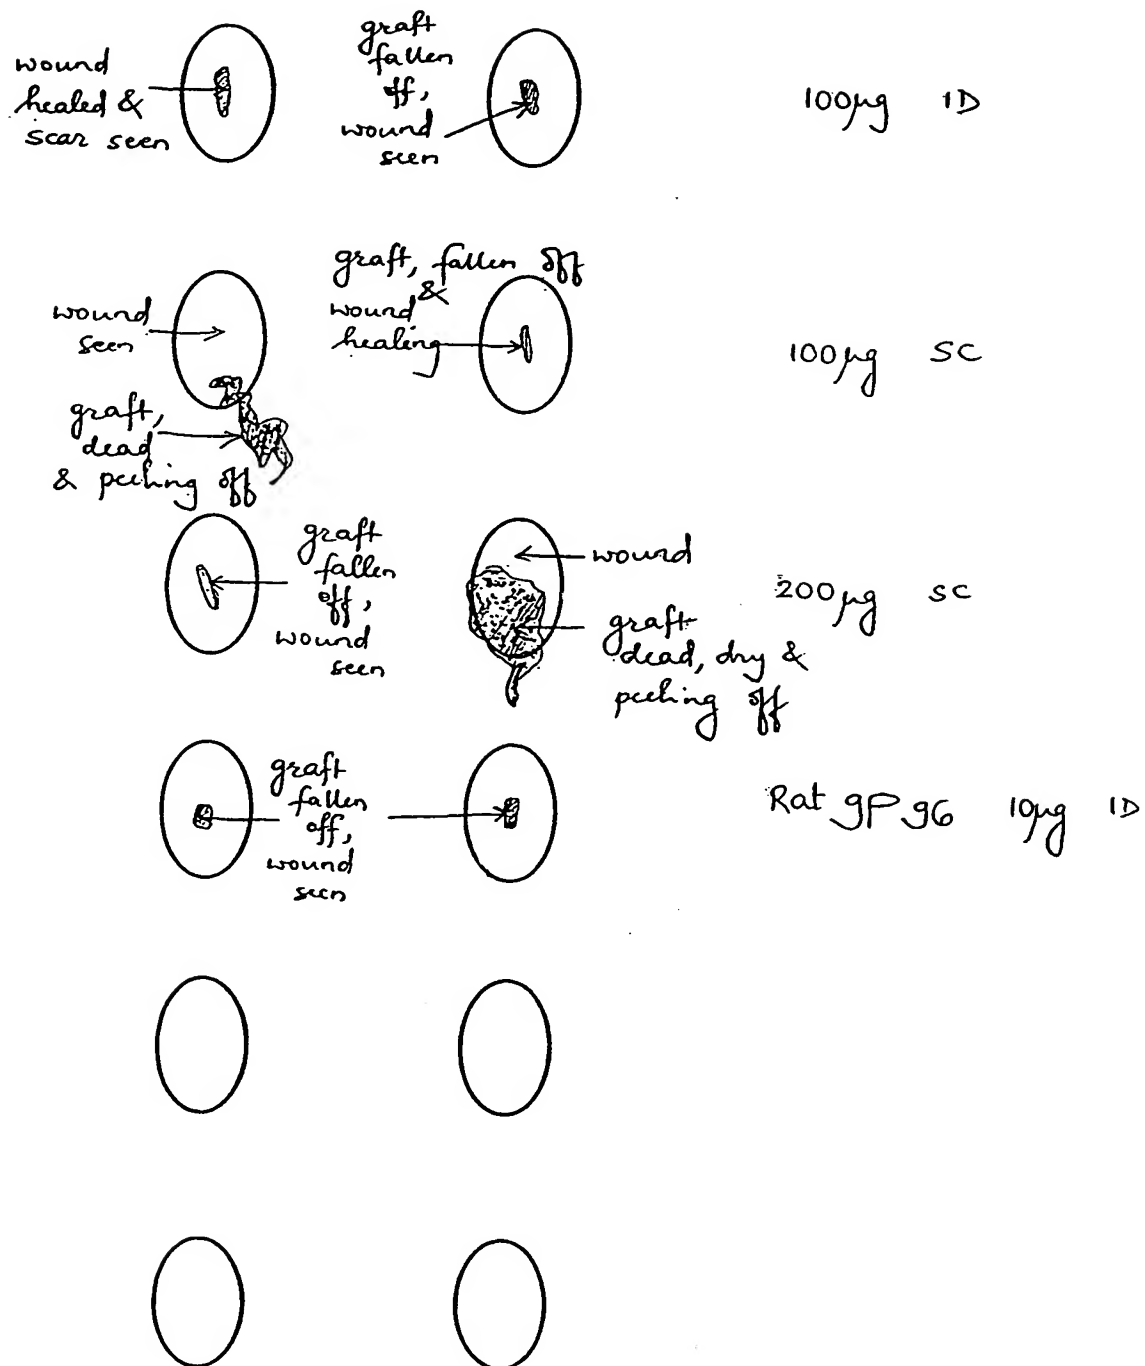 wound
healed &
scar seen
graft
fallen
off,
wound
seen
100µg ID
wound
seen
graft,
dead
& peeling off
graft, fallen off
&
wound
healing
100µg SC
graft
fallen
off,
wound
seen
wound
graft
dead, dry &
peeling off
200µg SC
graft
fallen
off,
wound
seen
Rat gp 96 10µg ID